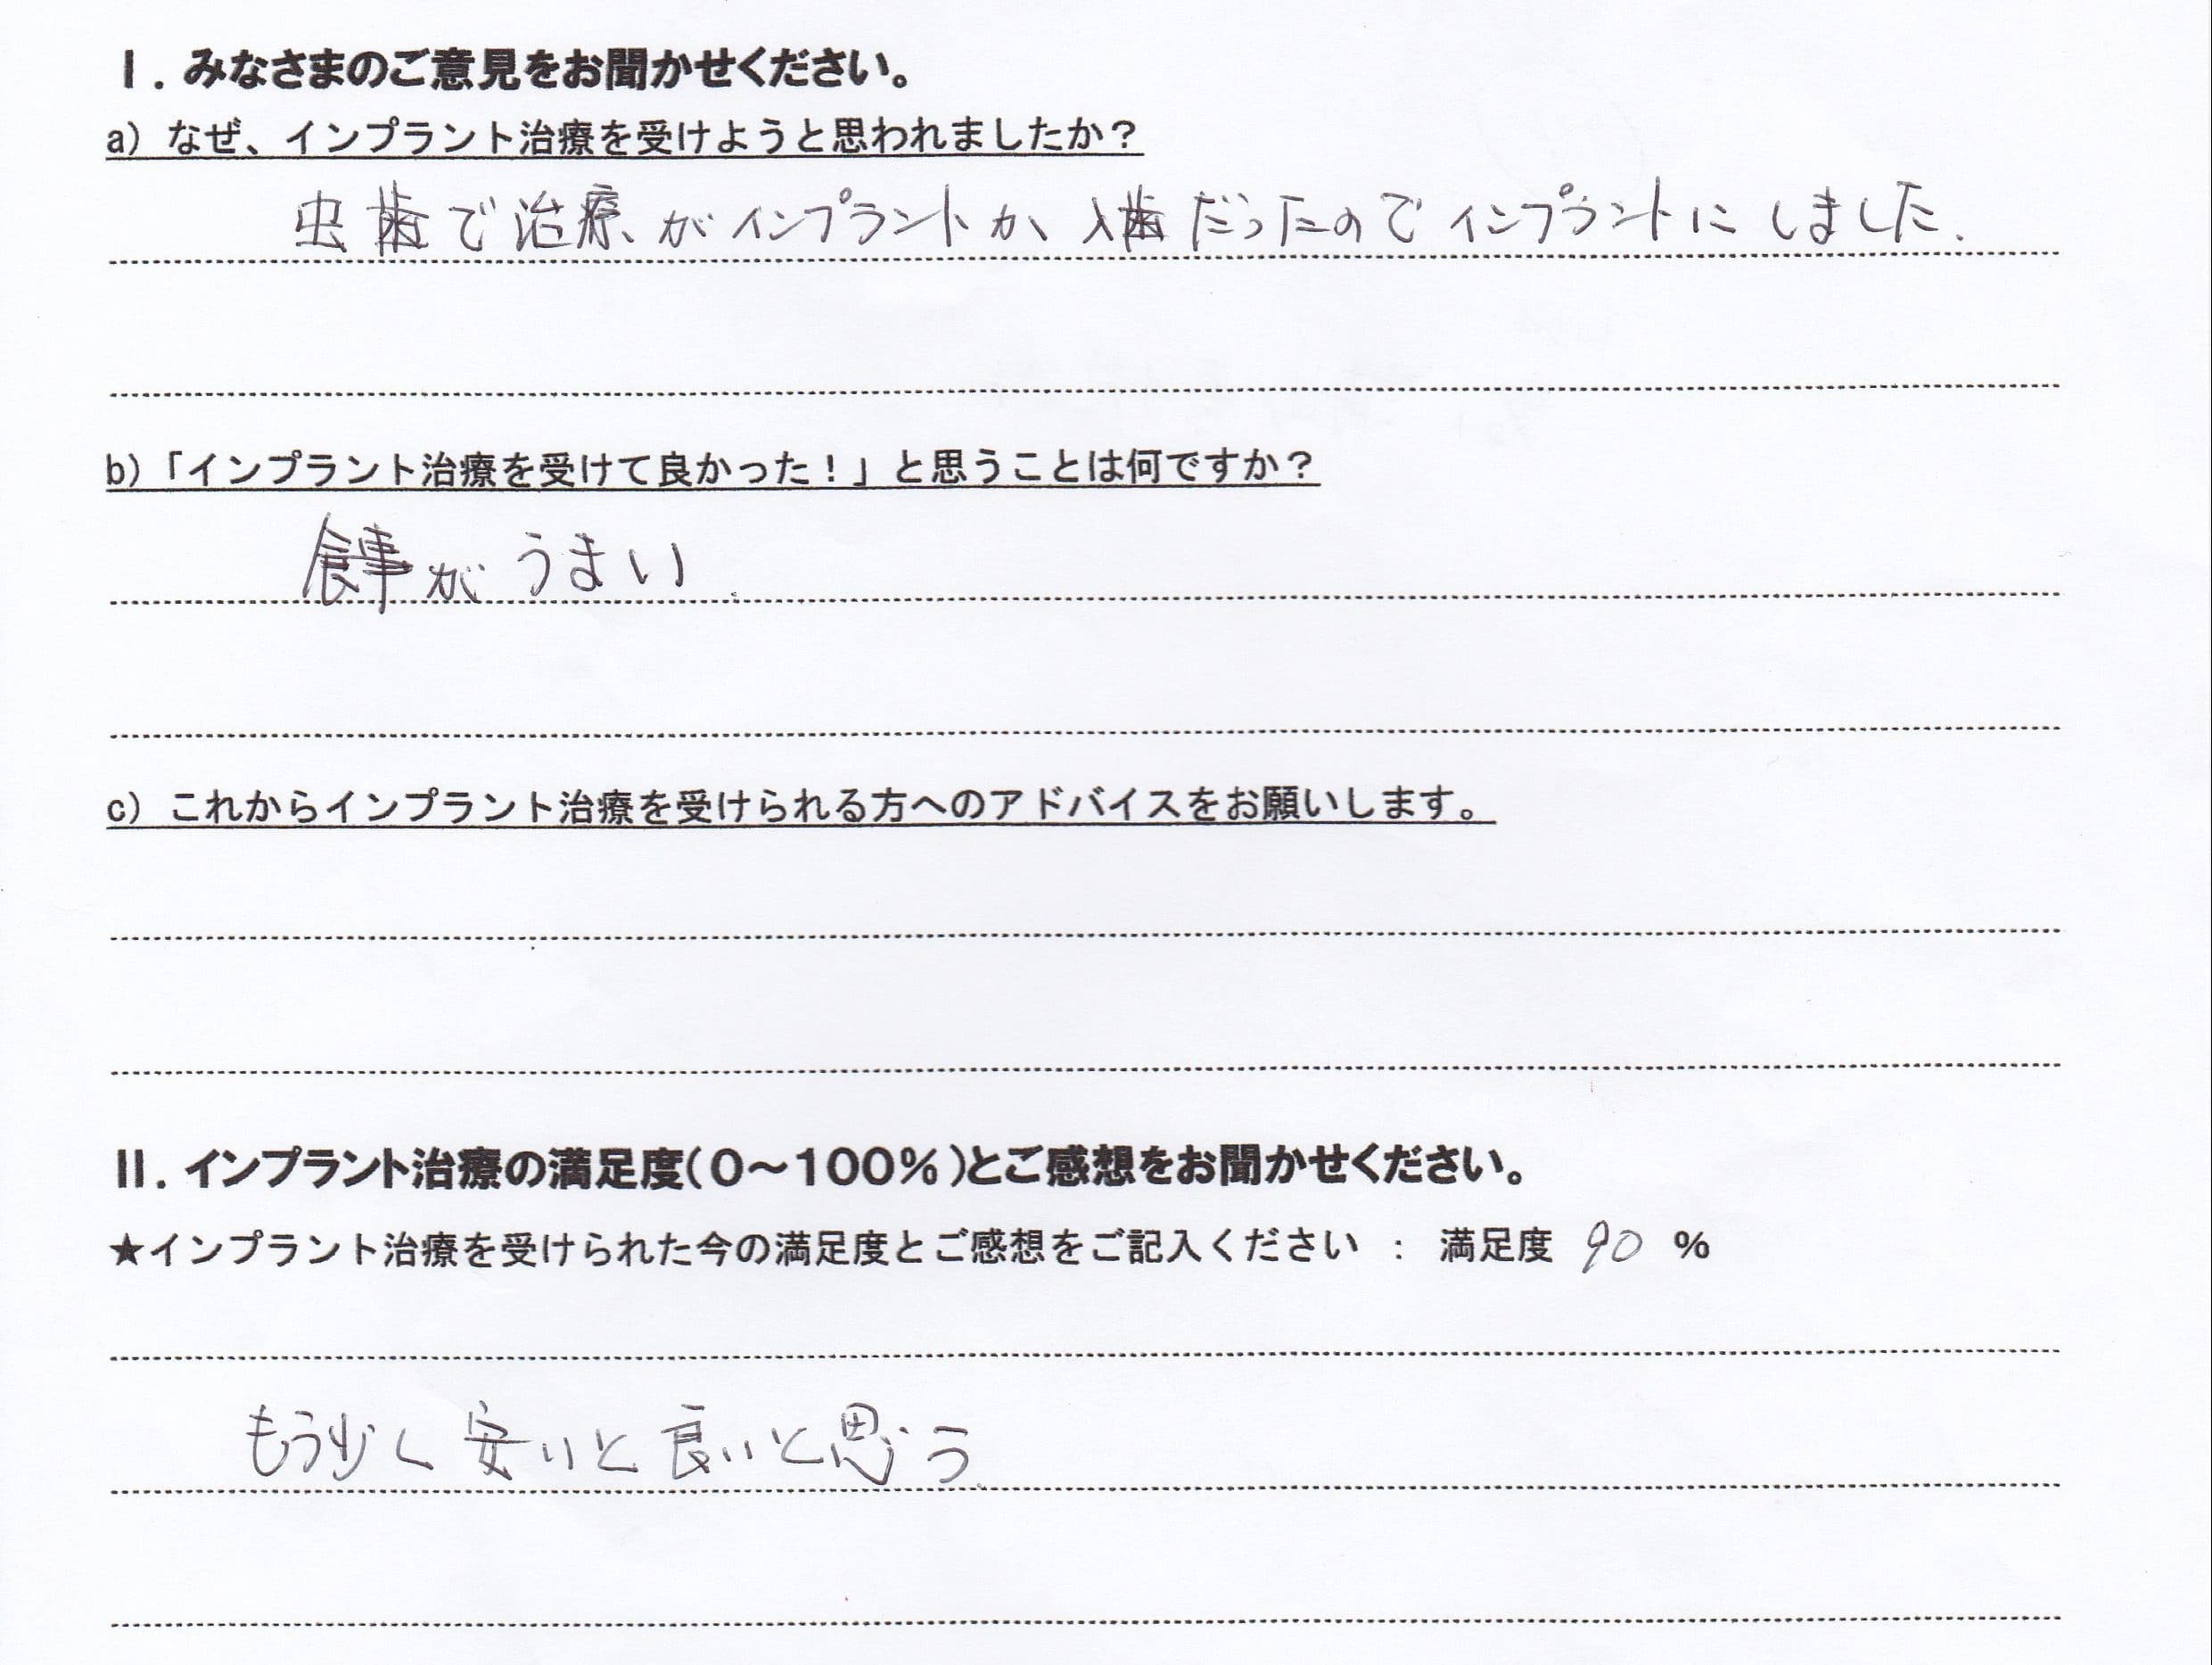 I. みなさまのご意見をお聞かせください。
a) なぜ、インプラント治療を受けようと思われましたか？
虫歯で治療がインプラントか入歯だったのでインプラントにしました.
b)「インプラント治療を受けて良かった！」と思うことは何ですか？
食事がうまい.
c) これからインプラント治療を受けられる方へのアドバイスをお願いします。
II. インプラント治療の満足度(０～１００％)とご感想をお聞かせください。
★インプラント治療を受けられた今の満足度とご感想をご記入ください ： 満足度 90 %
もう少し安いと良いと思う.